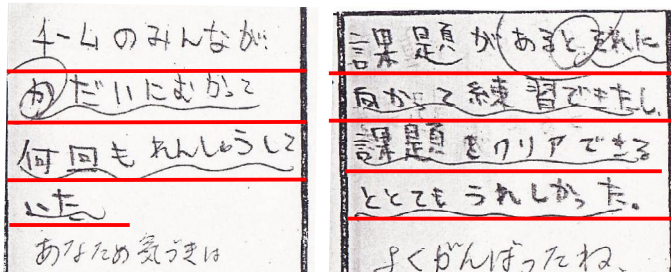 チームのみんなが
かだいにむかって
何回もれんしゅうして
いた
あなため気づきは
課題があるとそれに
向かって練習できたし、
課題をクリアできる
ととてもうれしかった。
よくがんばったね。